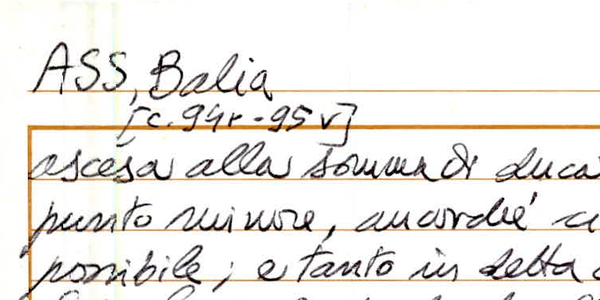 ASS, Balia
[c. 94r - 95v]
ascesa alla somma di duca
punto minore, ancorché a
possibile; e tanto in detta